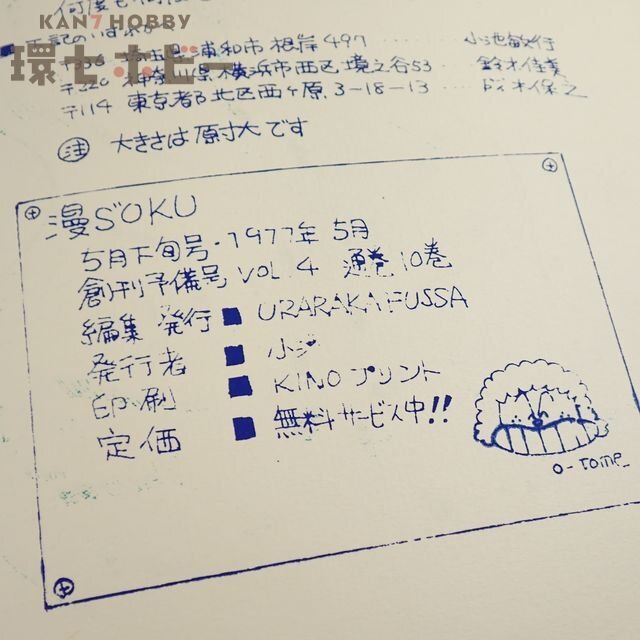 KAN7HOBBY
環七ホビー
〒336 埼玉県浦和市根岸497 ‥‥ 小池敏行
〒220 神奈川県横浜市西区境之谷53 ‥ 鈴木佳美
〒114 東京都北区西ヶ原3-18-13 ‥
注 大きさは原寸大です
漫S'OKU
5月下旬号・1977年5月
創刊予備号 VOL.4 通巻10巻
編集 発行 ■ URARAKAFUSSA
発行者 ■ 小池
印刷 ■ KINOプリント
定価 ■ 無料サービス中!!
O-TOME